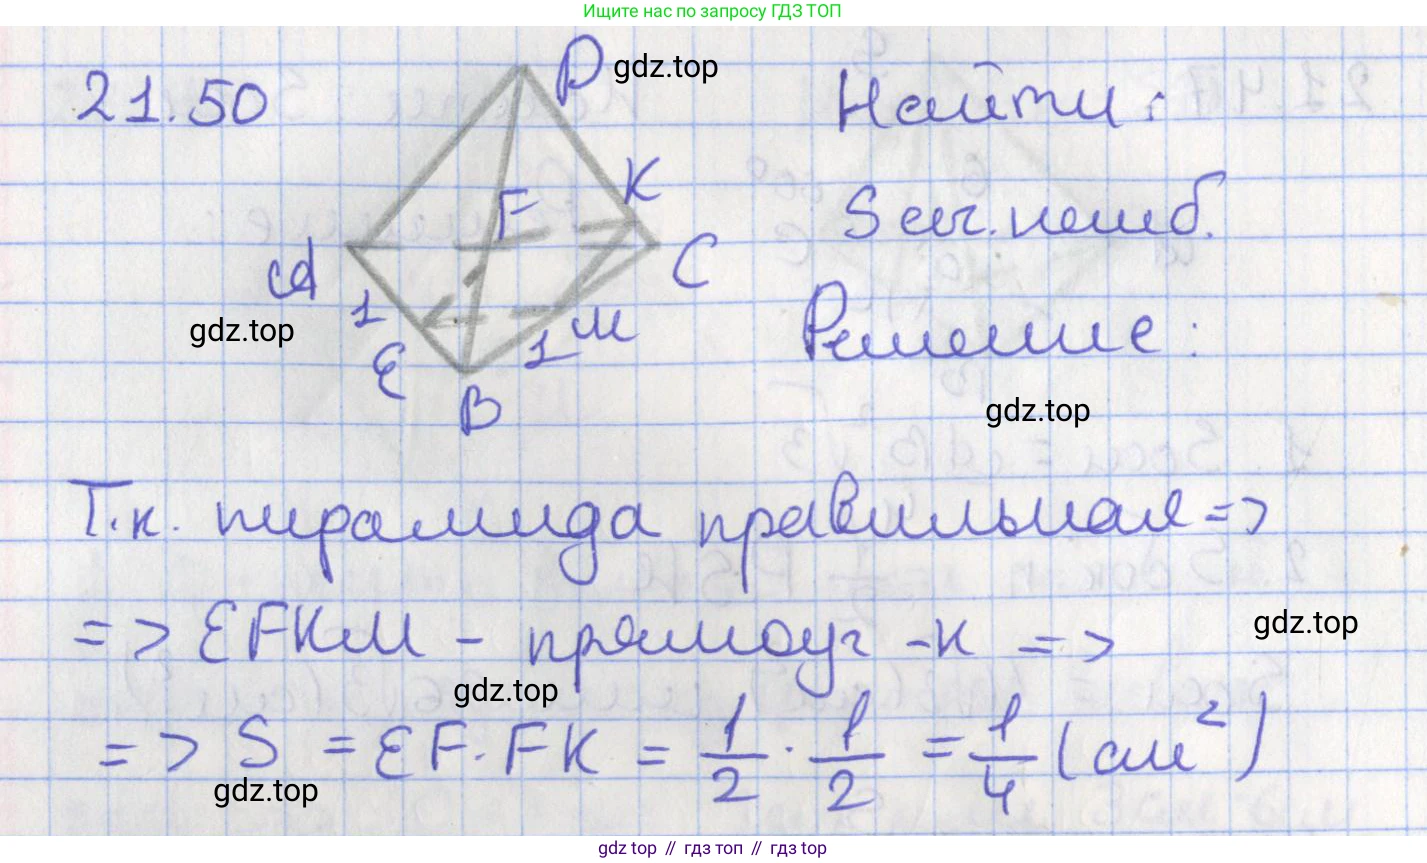 Ищите нас по запросу ГДЗ ТОП
21.50
P
gdz.top
Найти:
K
F
S сеч. наиб.
A
C
1
gdz.top
M
1
E
Решение:
B
gdz.top
Т.к. пирамида правильная =>
=> EFKM - прямоуг-к =>
gdz.top
gdz.top
=> S = EF · FK = 1/2 · 1/2 = 1/4 (см²)
gdz.top
gdz top // гдз топ // гдз top